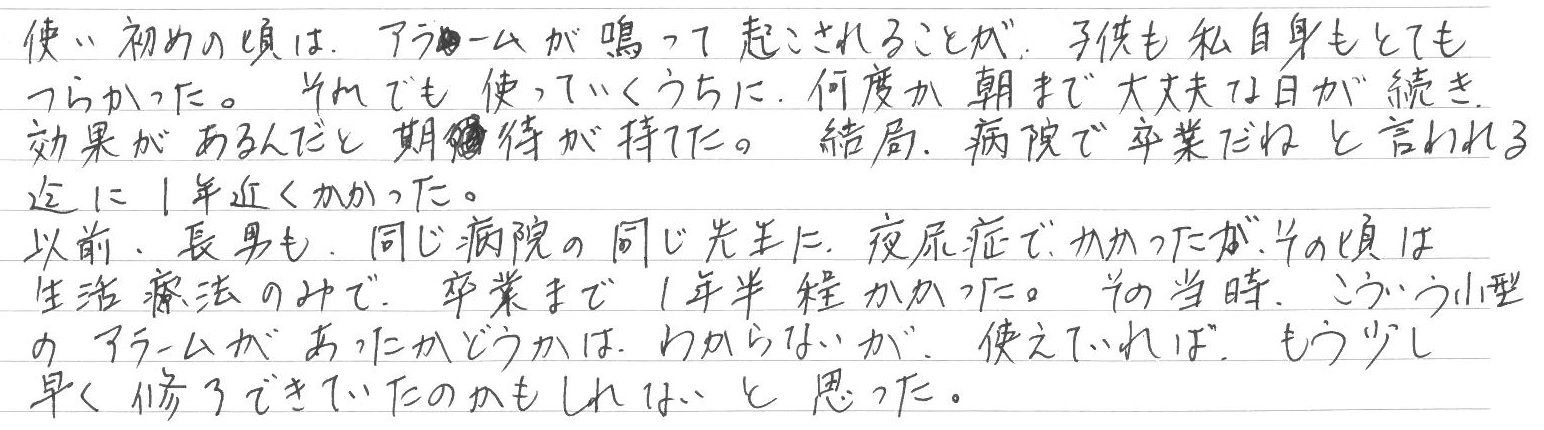 使い初めの頃は、アラームが鳴って起こされることが、子供も私自身もとても
つらかった。 それでも使っていくうちに、何度か朝まで大丈夫な日が続き、
効果があるんだと期待が持てた。 結局、病院で卒業だねと言われる
迄に1年近くかかった。
以前、長男も、同じ病院の同じ先生に、夜尿症で、かかったが、その頃は
生活療法のみで、卒業まで1年半程かかった。 その当時、こういう小型
のアラームがあったかどうかは、わからないが、使えていれば、もう少し
早く修了できていたのかもしれないと思った。